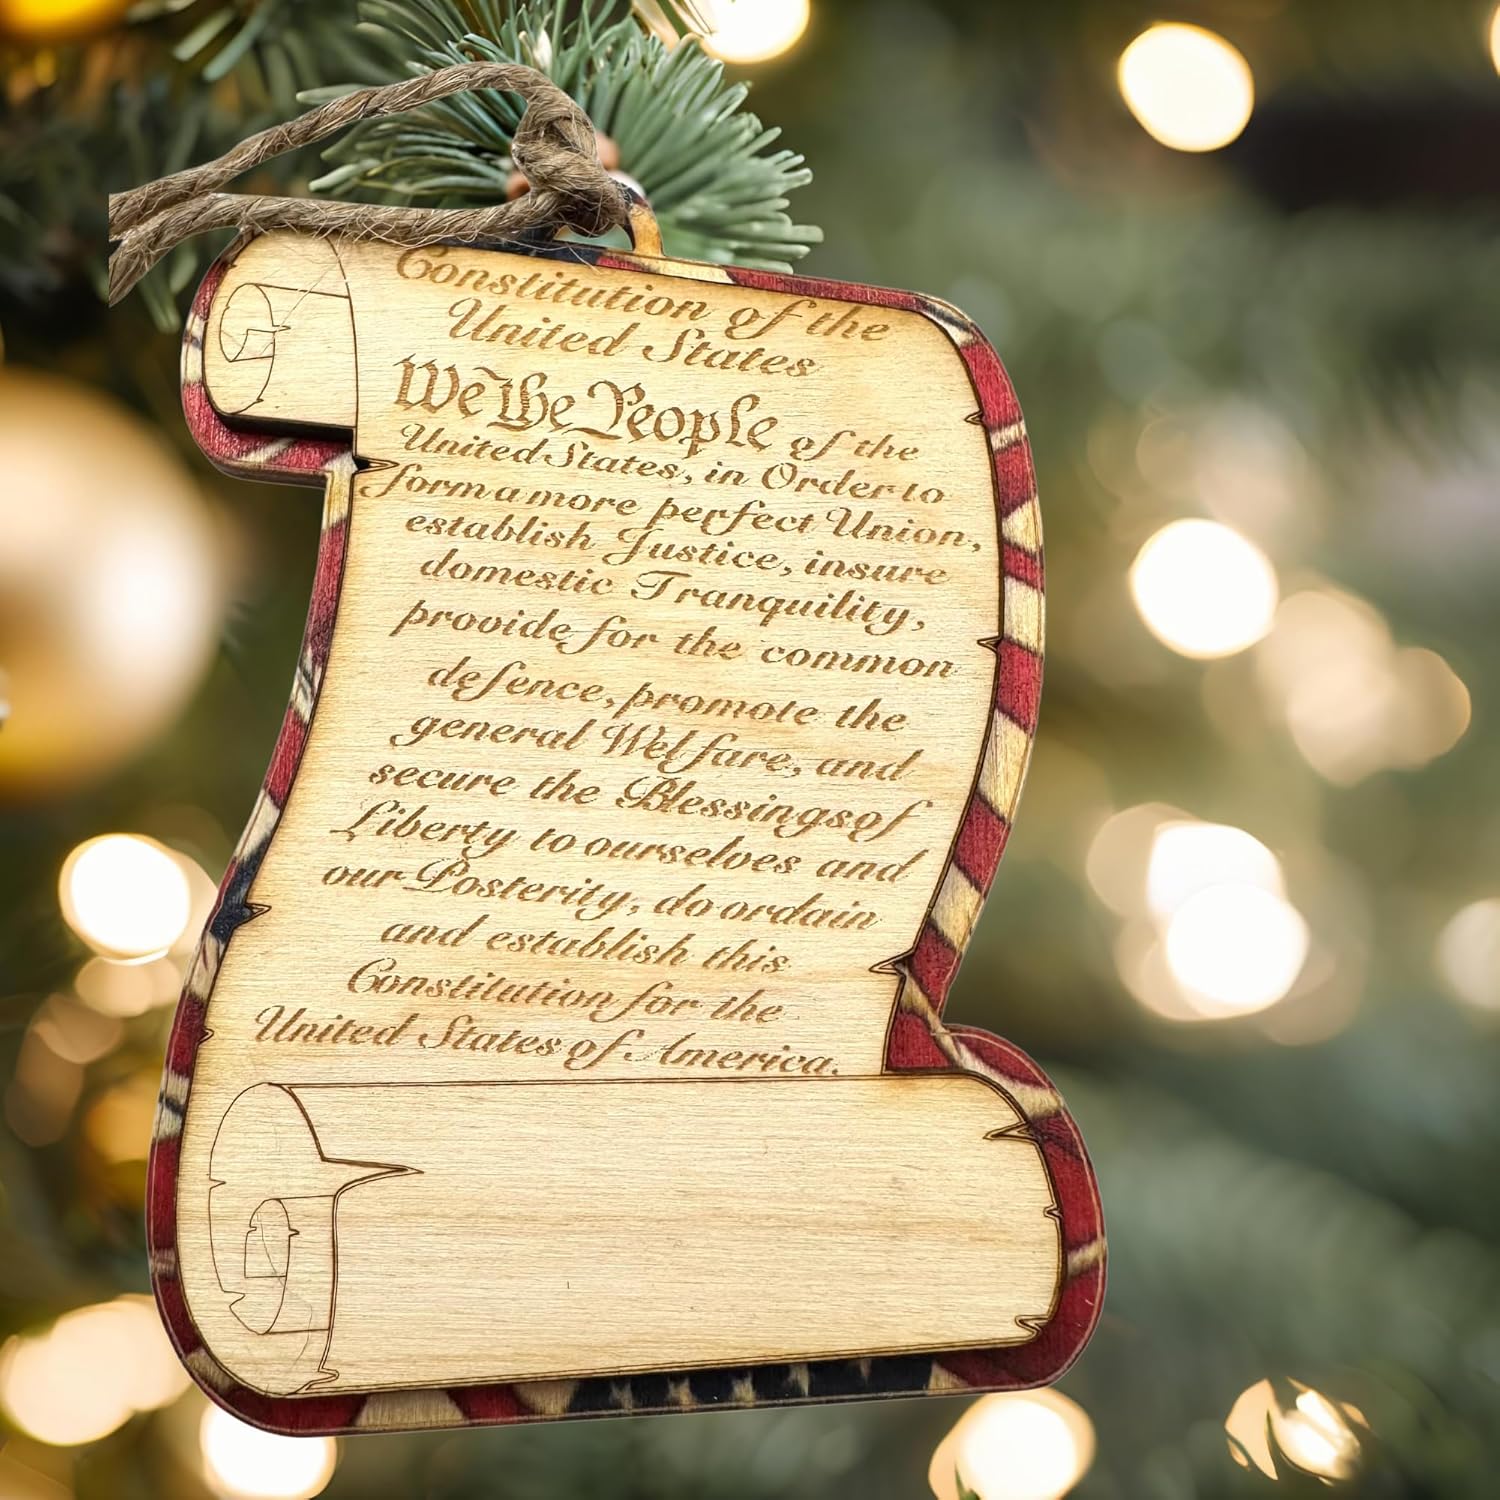 Constitution of the
United States
We the People of the
United States, in Order to
form a more perfect Union,
establish Justice, insure
domestic Tranquility,
provide for the common
defence, promote the
general Welfare, and
secure the Blessings of
Liberty to ourselves and
our Posterity, do ordain
and establish this
Constitution for the
United States of America.